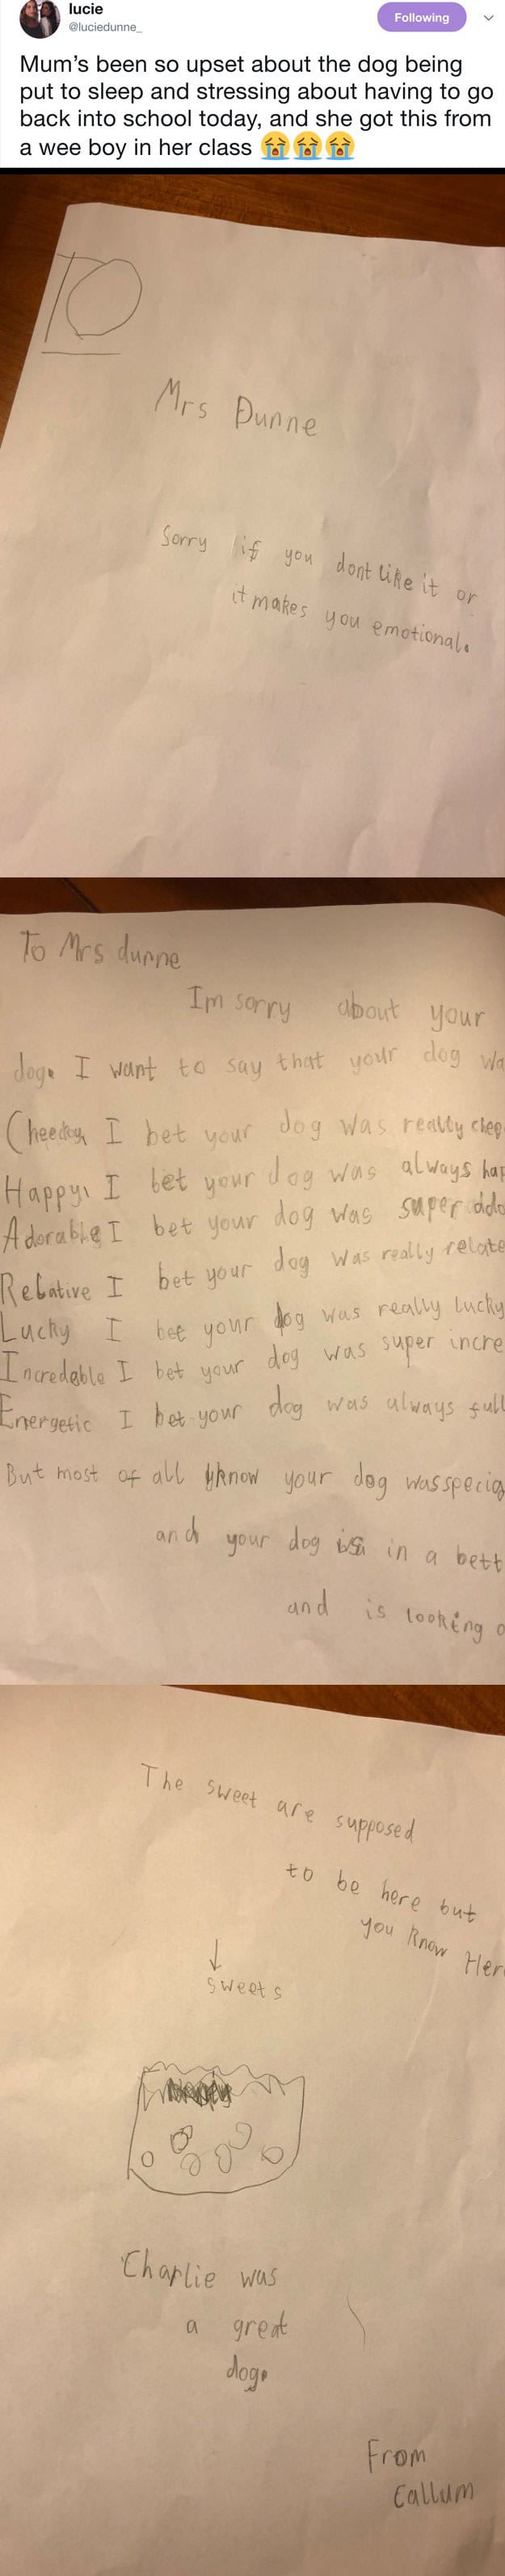 lucie
@luciedunne_
Following
Mum's been so upset about the dog being
put to sleep and stressing about having to go
back into school today, and she got this from
a wee boy in her class 😭😭😭
TO
Mrs Dunne
Sorry if you dont like it or
it makes you emotional.
To Mrs dunne
Im sorry about your
dog. I want to say that your dog wa
I bet your dog was really chee
Happy. I bet your dog was always hap
Adorable I bet your dog was super ado
Relative I bet your dog was really relate
Lucky I bet your dog was really lucky
Incredeble I bet your dog was super incre
Energetic I bet your dog was always full
But most of all know your dog was specia
and your dog is in a bett
and is looking o
The sweet are supposed
to be here but
you know Her
↓
sweets
Charlie was
a great
dog.
From
Callum